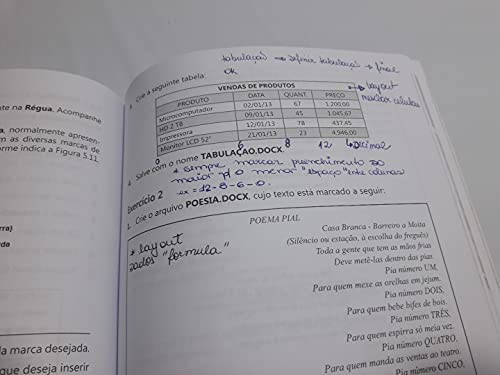 tabulação → definir tabulação → final
ok
3. Crie a seguinte tabela:
VENDAS DE PRODUTOS
PRODUTO DATA QUANT. PREÇO
Microcomputador 02/01/13 67 1.200,00
HD 2 TB 09/01/13 45 1.045,67
Impressora 12/01/13 78 437,45
Monitor LCD 52" 21/01/13 23 4.946,00
↳ Layout
mesclar células
0 6 8 12 ↳ Decimal
4. Salve com o nome TABULAÇAO.DOCX
* sempre marcar preenchimento do
maior p/ o menor "espaço" entre colunas
ex = 12-8-6-0.
Exercício 2
1. Crie o arquivo POESIA.DOCX, cujo texto está marcado a seguir.
* Layout
dados "fórmula"
POEMA PIAL
Casa Branca - Barreiro a Moita
(Silêncio ou estação, à escolha do freguês)
Toda a gente que tem as mãos frias
Deve metê-las dentro das pias.
Pia número UM,
Para quem mexe as orelhas em jejum.
Pia número DOIS,
Para quem bebe bifes de bois.
Pia número TRÊS,
Para quem espirra só meia vez.
Pia número QUATRO,
Para quem manda as ventas ao teatro.
Pia número CINCO,
nte na Régua. Acompanhe
a, normalmente apresen-
m as diversas marcas de
orme indica a Figura 5.11.
rra)
da
la marca desejada.
que deseja inserir